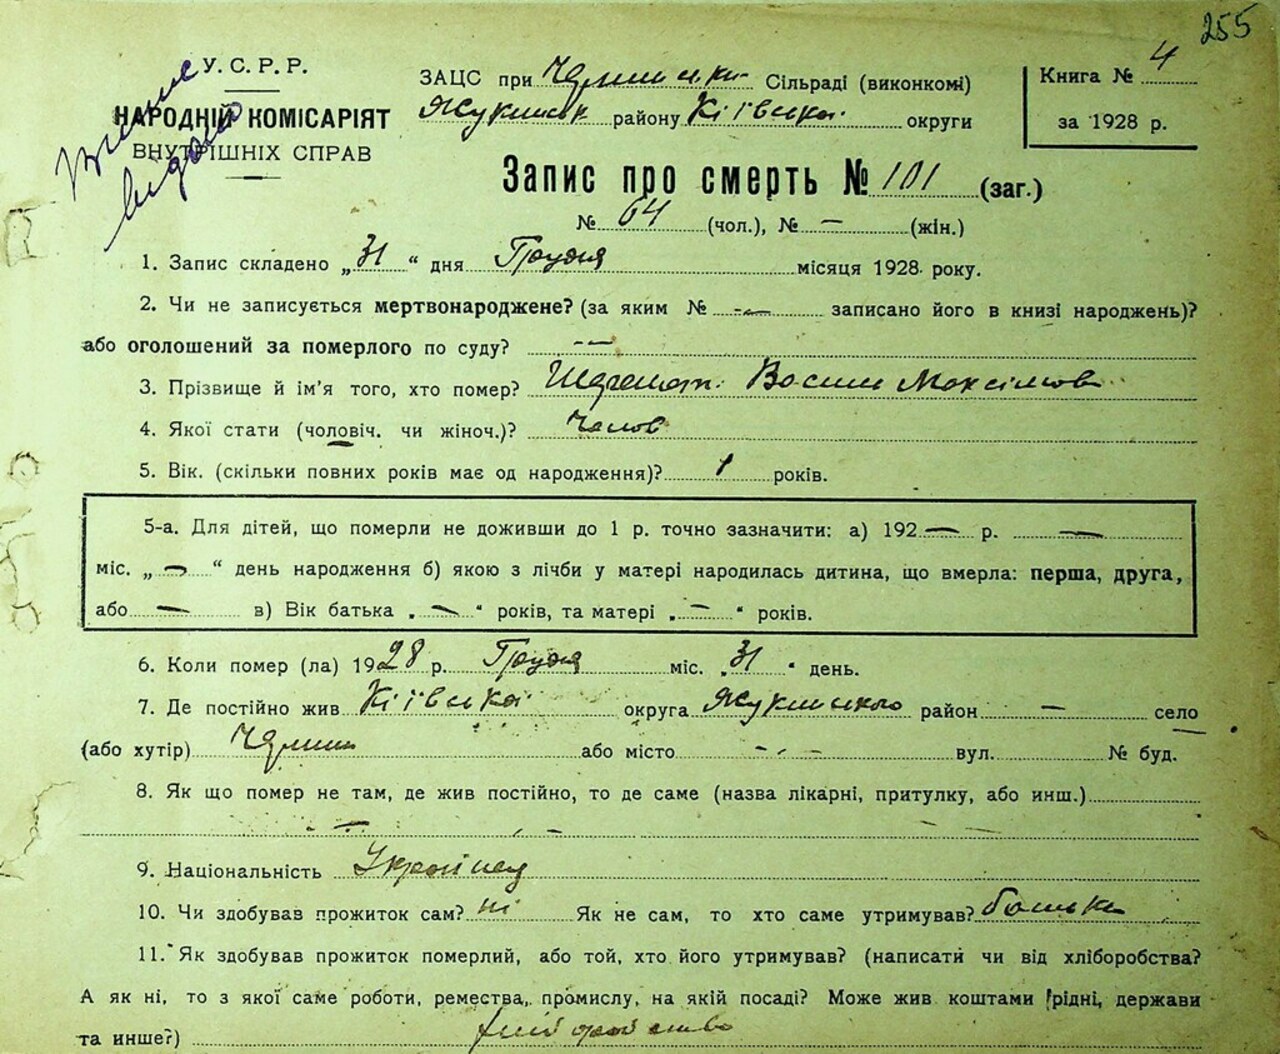 255
У. С. Р. Р.
НАРОДНІЙ КОМІСАРІЯТ
ВНУТРІШНІХ СПРАВ
видано
ЗАЦС при Сільраді (виконкомі)
району Київської округи
Книга № 4
за 1928 р.
Запис про смерть № 101 (заг.)
№ 64 (чол.), № — (жін.)
1. Запис складено „31“ дня Грудня місяця 1928 року.
2. Чи не записується мертвонароджене? (за яким № — записано його в книзі народжень)?
або оголошений за померлого по суду? —
3. Прізвище й ім’я того, хто помер? Василь Максимов
4. Якої стати (чоловіч. чи жіноч.)? Чолов
5. Вік. (скільки повних років має од народження)? 1 років.
5-а. Для дітей, що померли не доживши до 1 р. точно зазначити: а) 192— р. —
міс. „—“ день народження б) якою з лічби у матері народилась дитина, що вмерла: перша, друга,
або — в) Вік батька „—“ років, та матері „—“ років.
6. Коли помер (ла) 1928 р. Грудня міс. „31“ день.
7. Де постійно жив Київської округа район — село
(або хутір) або місто — вул. № буд.
8. Як що помер не там, де жив постійно, то де саме (назва лікарні, притулку, або инш.)
9. Національність Українец
10. Чи здобував прожиток сам? ні Як не сам, то хто саме утримував? батьки
11. Як здобував прожиток померлий, або той, хто його утримував? (написати чи від хліборобства?
А як ні, то з якої саме роботи, ремества, промислу, на якій посаді? Може жив коштами рідні, держави
та инше?)